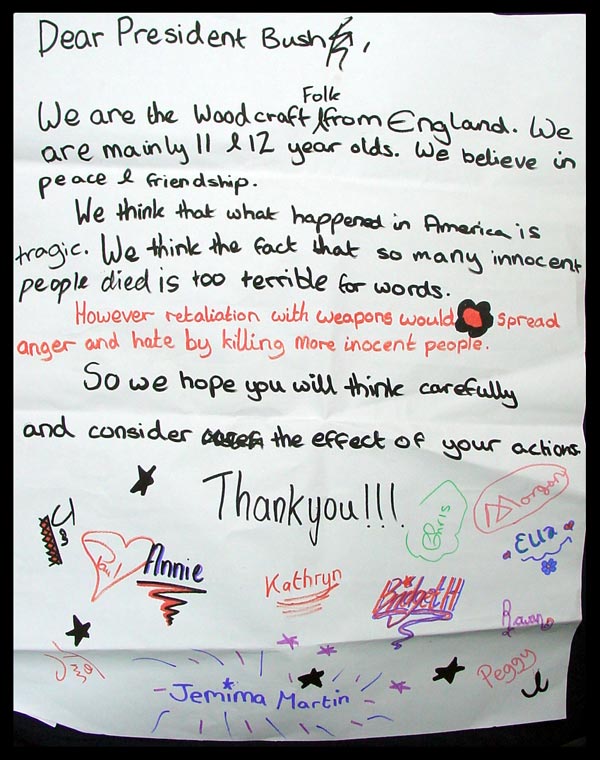 Dear President Bush,
Folk
We are the Woodcraft from England. We
are mainly 11 & 12 year olds. We believe in
peace & friendship.
We think that what happened in America is
tragic. We think the fact that so many innocent
people died is too terrible for words.
However retaliation with weapons would spread
anger and hate by killing more inocent people.
So we hope you will think carefully
and consider the effect of your actions.
Thankyou!!!
Chris
Morgan
Annie
Kathryn
Bridget H
Ella
Rowan
Peggy
Jemima Martin